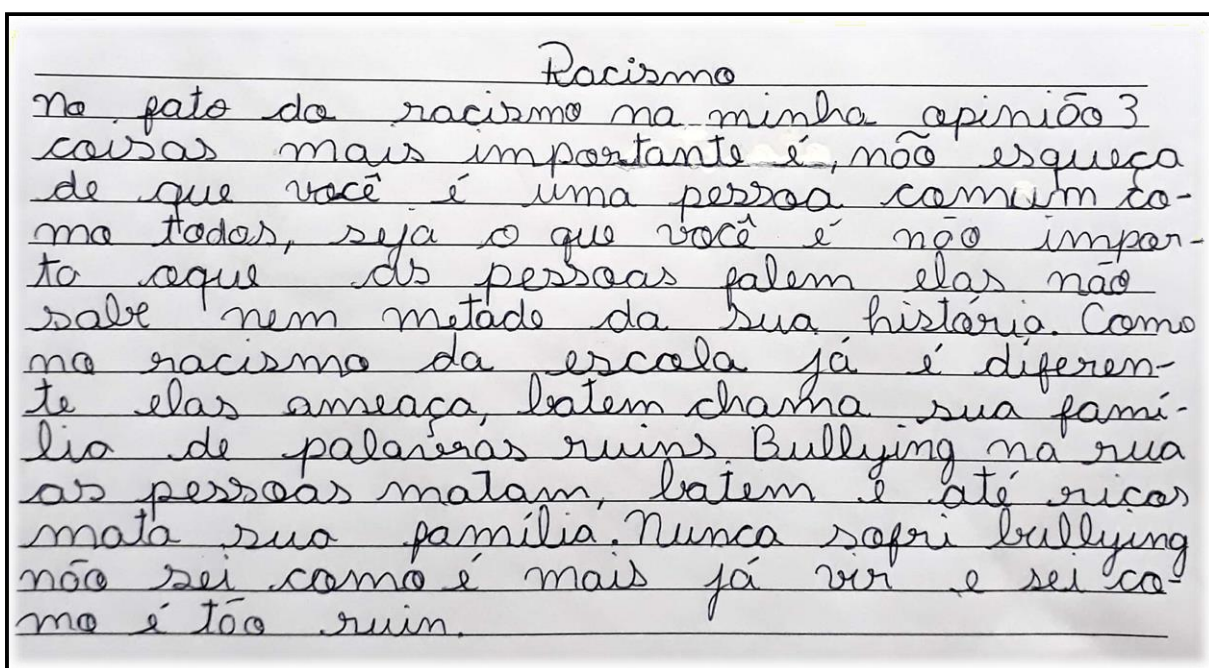 Racismo
no fato do racismo na minha opinião 3
coisas mais importante é, não esqueça
de que você é uma pessoa comum co-
mo todos, seja o que você é não impor-
ta oque as pessoas falem elas não
sabe nem metade da sua história. Como
no racismo da escola já é diferen-
te elas ameaça, batem chama sua famí-
lia de palavras ruins. Bullying na rua
as pessoas matam, batem e até ricos
mata sua família. Nunca sofri bullying
não sei como é mais já vir e sei co-
mo é tão ruin.